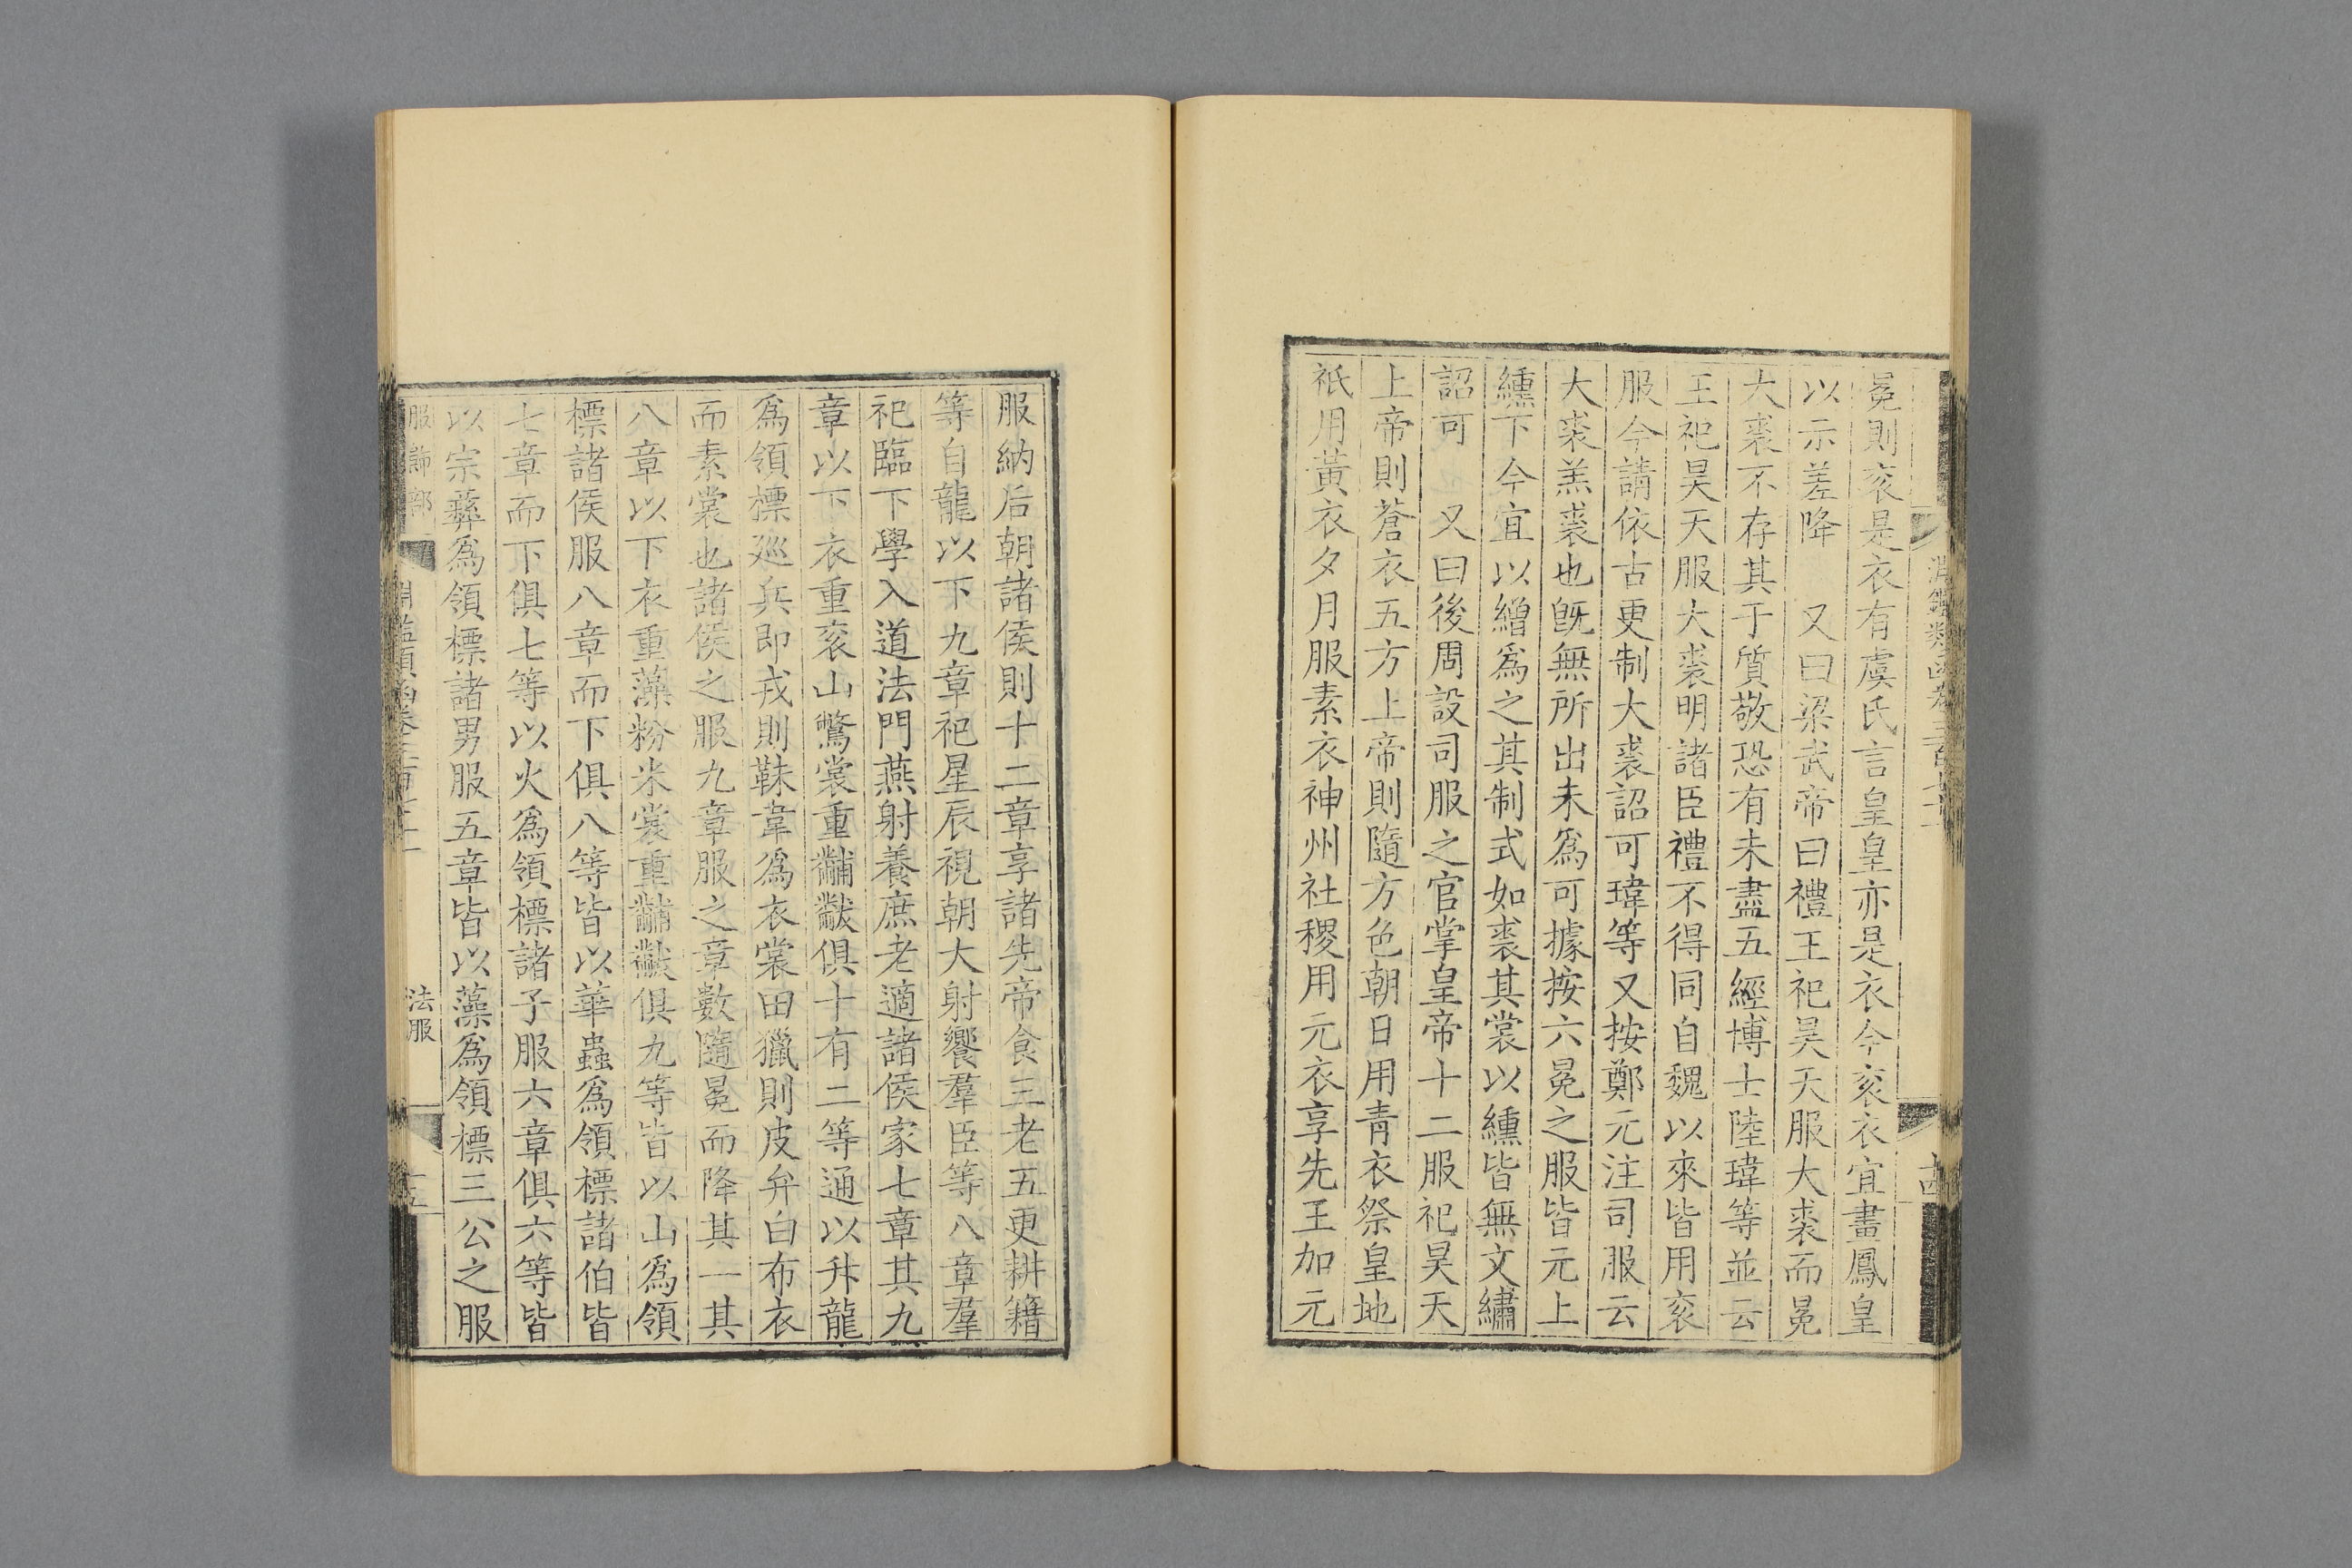 冕則衮是衣有虞氏言皇皇亦是衣今衮衣宜畫鳳皇
以示差降　又曰梁武帝曰禮王祀昊天服大裘而冕
大裘不存其于質敬恐有未盡五經博士陸瑋等並云
王祀昊天服大裘明諸臣禮不得同自魏以來皆用衮
服今請依古更制大裘詔可瑋等又按鄭元注司服云
大裘羔裘也旣無所出未爲可據按六冕之服皆元上
纁下今宜以繒爲之其制式如裘其裳以纁皆無文繡
詔可　又曰後周設司服之官掌皇帝十二服祀昊天
上帝則蒼衣五方上帝則隨方色朝日用靑衣祭皇地
祇用黃衣夕月服素衣神州社稷用元衣享先王加元
服納后朝諸侯則十二章享諸先帝食三老五更耕籍
等自龍以下九章祀星辰視朝大射饗羣臣等八章羣
祀臨下學入道法門燕射養庶老適諸侯家七章其九
章以下衣重衮山鷩裳重黼黻俱十有二等通以升龍
爲領標廵兵即戎則韎韋爲衣裳田獵則皮弁白布衣
而素裳也諸侯之服九章服之章數隨冕而降其一其
八章以下衣重藻粉米裳重黼黻俱九等皆以山爲領
標諸侯服八章而下俱八等皆以華蟲爲領標諸伯皆
七章而下俱七等以火爲領標諸子服六章俱六等皆
以宗彝爲領標諸男服五章皆以藻爲領標三公之服
服飾部
法服